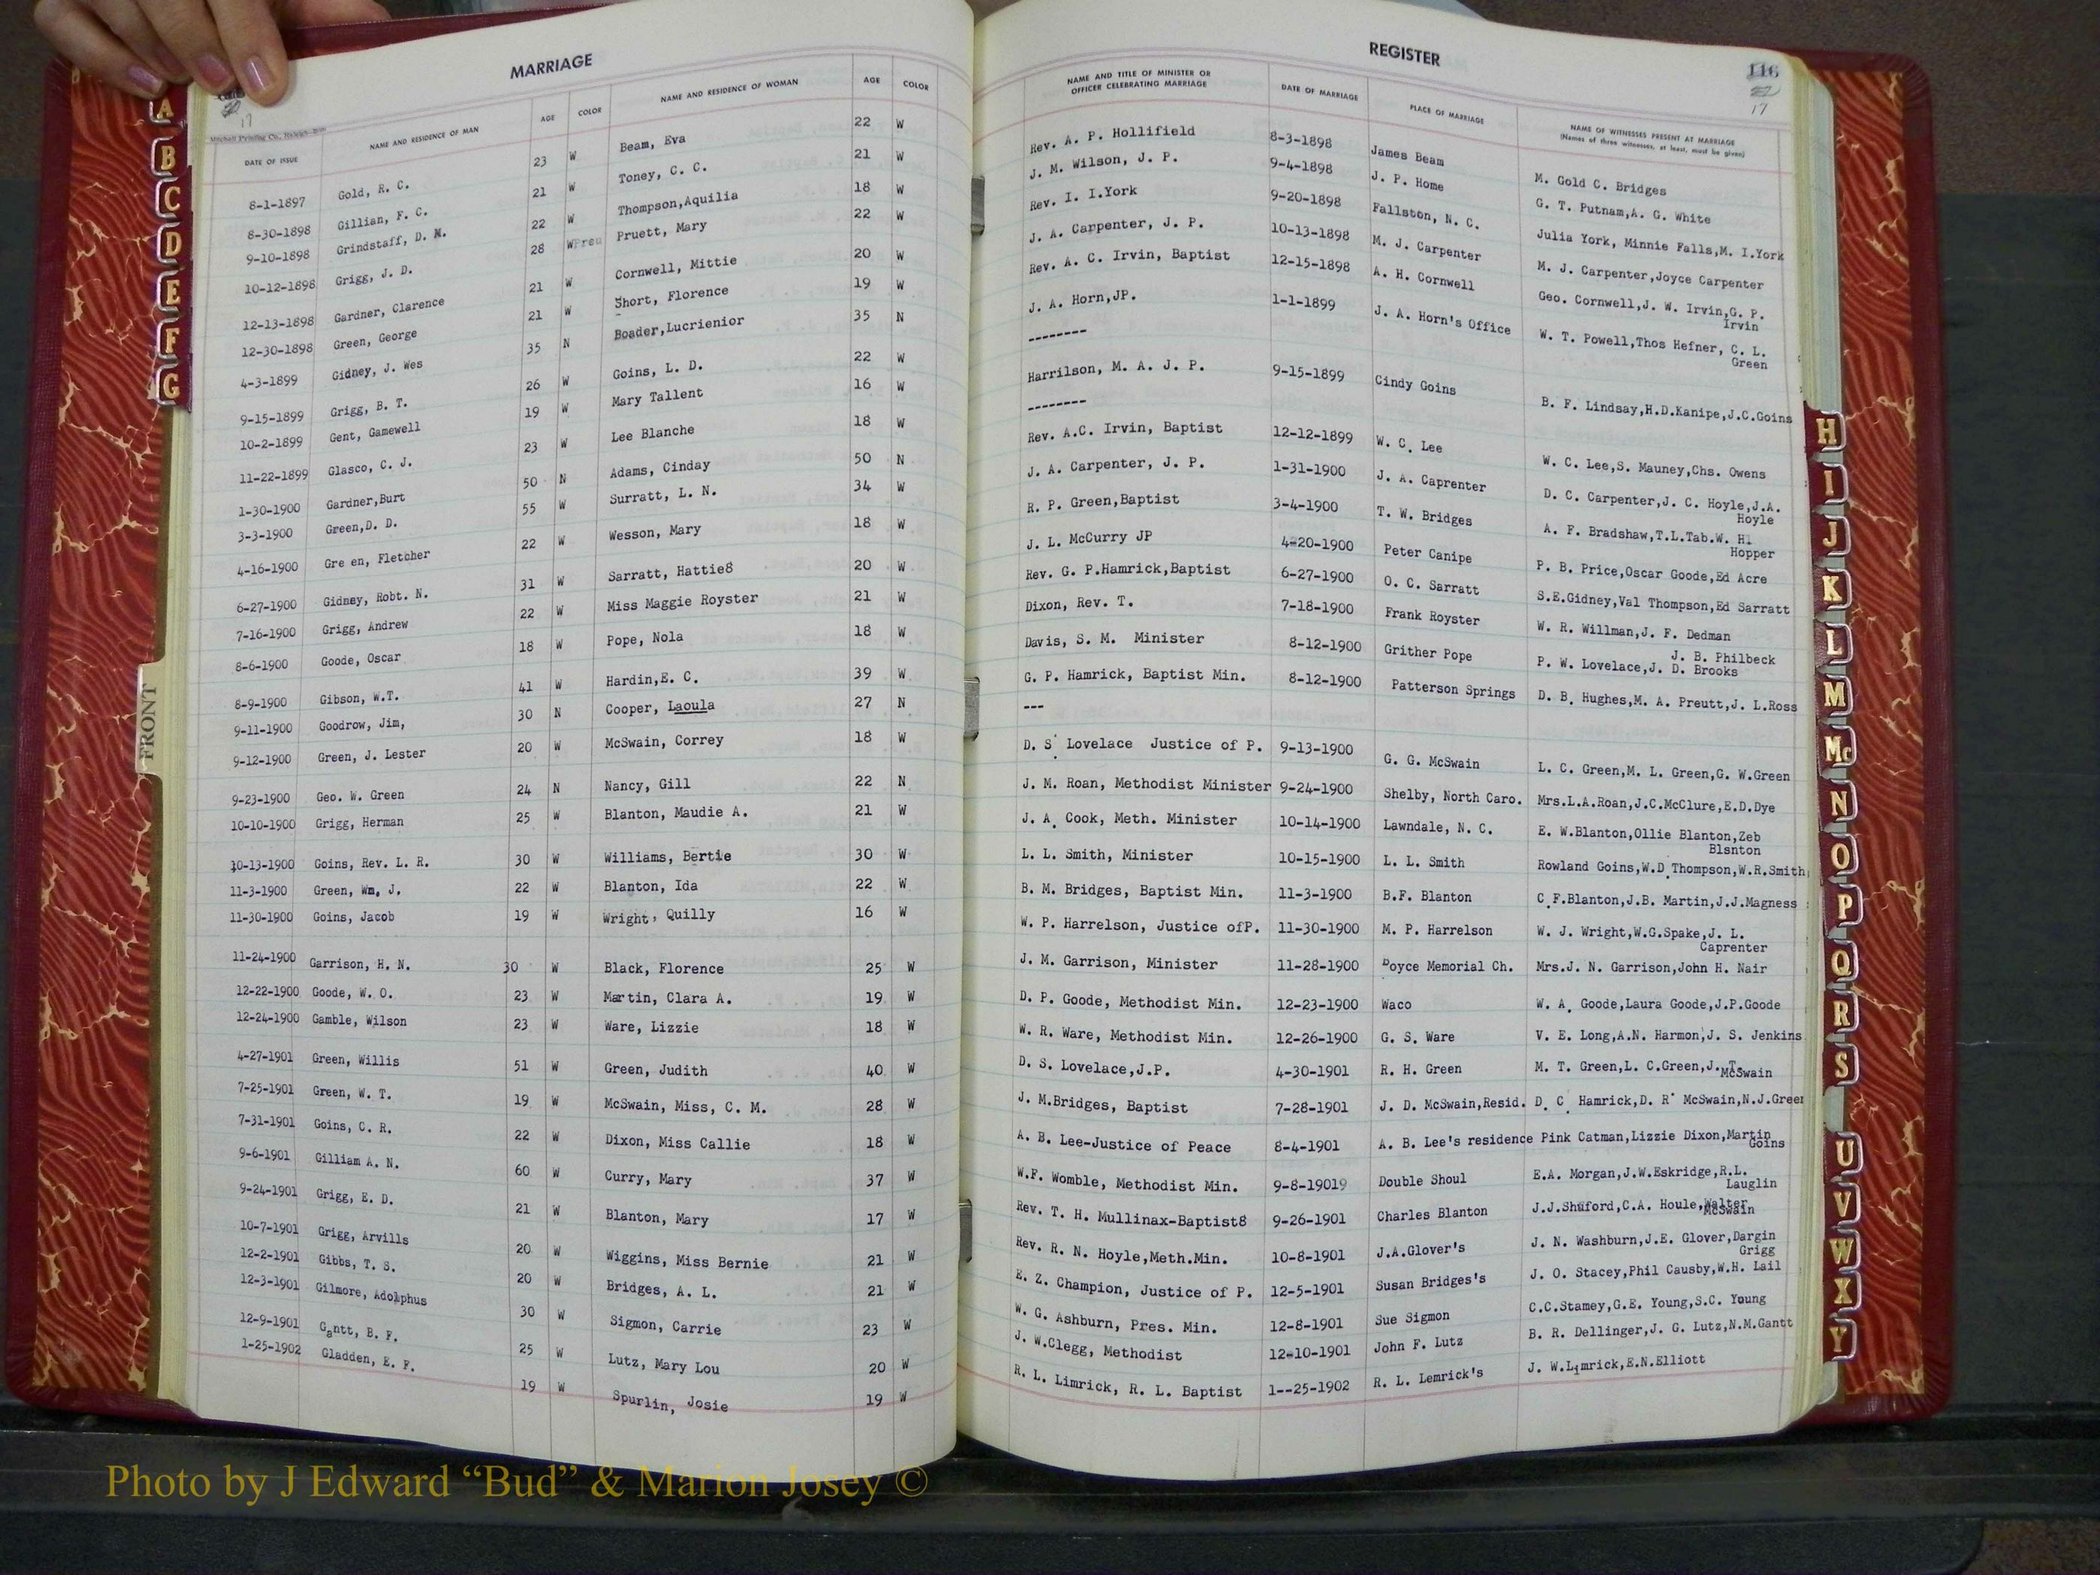 MARRIAGE
REGISTER
116
17
17
Mitchell Printing Co., Raleigh
DATE OF ISSUE | NAME AND RESIDENCE OF MAN | AGE | COLOR | NAME AND RESIDENCE OF WOMAN | AGE | COLOR | NAME AND TITLE OF MINISTER OR OFFICER CELEBRATING MARRIAGE | DATE OF MARRIAGE | PLACE OF MARRIAGE | NAME OF WITNESSES PRESENT AT MARRIAGE (Names of three witnesses, at least, must be given)
8-1-1897 Gold, R. C. 23 W Beam, Eva 22 W Rev. A. P. Hollifield 8-3-1898 James Beam M. Gold C. Bridges
8-30-1898 Gillian, F. C. 21 W Toney, C. C. 21 W J. M. Wilson, J. P. 9-4-1898 J. P. Home G. T. Putnam,A. G. White
9-10-1898 Grindstaff, D. M. 22 W Thompson,Aquilia 18 W Rev. I. I.York 9-20-1898 Fallston, N. C. Julia York, Minnie Falls,M. I.York
10-12-1898 Grigg, J. D. 28 W Pruett, Mary 22 W J. A. Carpenter, J. P. 10-13-1898 M. J. Carpenter M. J. Carpenter,Joyce Carpenter
12-13-1898 Gardner, Clarence 21 W Cornwell, Mittie 20 W Rev. A. C. Irvin, Baptist 12-15-1898 A. H. Cornwell Geo. Cornwell,J. W. Irvin,G. P. Irvin
12-30-1898 Green, George 21 W Short, Florence 19 W J. A. Horn,JP. 1-1-1899 J. A. Horn's Office W. T. Powell,Thos Hefner, C. L. Green
4-3-1899 Gidney, J. Wes 35 N Boader,Lucrienior 35 N -------
9-15-1899 Grigg, B. T. 26 W Goins, L. D. 22 W Harrilson, M. A. J. P. 9-15-1899 Cindy Goins B. F. Lindsay,H.D.Kanipe,J.C.Goins
10-2-1899 Gent, Gamewell 19 W Mary Tallent 16 W --------
11-22-1899 Glasco, C. J. 23 W Lee Blanche 18 W Rev. A.C. Irvin, Baptist 12-12-1899 W. C. Lee W. C. Lee,S. Mauney,Chs. Owens
1-30-1900 Gardner,Burt 50 N Adams, Cinday 50 N J. A. Carpenter, J. P. 1-31-1900 J. A. Caprenter D. C. Carpenter,J. C. Hoyle,J.A. Hoyle
3-3-1900 Green,D. D. 55 W Surratt, L. N. 34 W R. P. Green,Baptist 3-4-1900 T. W. Bridges A. F. Bradshaw,T.L.Tab.W. Hi Hopper
4-16-1900 Gre en, Fletcher 22 W Wesson, Mary 18 W J. L. McCurry JP 4-20-1900 Peter Canipe P. B. Price,Oscar Goode,Ed Acre
6-27-1900 Gidney, Robt. N. 31 W Sarratt, Hattie8 20 W Rev. G. P.Hamrick,Baptist 6-27-1900 O. C. Sarratt S.E.Gidney,Val Thompson,Ed Sarratt
7-16-1900 Grigg, Andrew 22 W Miss Maggie Royster 21 W Dixon, Rev. T. 7-18-1900 Frank Royster W. R. Willman,J. F. Dedman J. B. Philbeck
8-6-1900 Goode, Oscar 18 W Pope, Nola 18 W Davis, S. M. Minister 8-12-1900 Grither Pope P. W. Lovelace,J. D. Brooks
8-9-1900 Gibson, W.T. 41 W Hardin,E. C. 39 W G. P. Hamrick, Baptist Min. 8-12-1900 Patterson Springs D. B. Hughes,M. A. Preutt,J. L.Ross
9-11-1900 Goodrow, Jim, 30 N Cooper, Laoula 27 N ---
9-12-1900 Green, J. Lester 20 W McSwain, Correy 18 W D. S. Lovelace Justice of P. 9-13-1900 G. G. McSwain L. C. Green,M. L. Green,G. W.Green
9-23-1900 Geo. W. Green 24 N Nancy, Gill 22 N J. M. Roan, Methodist Minister 9-24-1900 Shelby, North Caro. Mrs.L.A.Roan,J.C.McClure,E.D.Dye
10-10-1900 Grigg, Herman 25 W Blanton, Maudie A. 21 W J. A. Cook, Meth. Minister 10-14-1900 Lawndale, N. C. E. W.Blanton,Ollie Blanton,Zeb Blsnton
10-13-1900 Goins, Rev. L. R. 30 W Williams, Bertie 30 W L. L. Smith, Minister 10-15-1900 L. L. Smith Rowland Goins,W.D.Thompson,W.R.Smith
11-3-1900 Green, Wm. J. 22 W Blanton, Ida 22 W B. M. Bridges, Baptist Min. 11-3-1900 B.F. Blanton C.F.Blanton,J.B. Martin,J.J.Magness
11-30-1900 Goins, Jacob 19 W Wright, Quilly 16 W W. P. Harrelson, Justice ofP. 11-30-1900 M. P. Harrelson W. J. Wright,W.G.Spake,J. L. Caprenter
11-24-1900 Garrison, H. N. 30 W Black, Florence 25 W J. M. Garrison, Minister 11-28-1900 Boyce Memorial Ch. Mrs.J. N. Garrison,John H. Nair
12-22-1900 Goode, W. O. 23 W Martin, Clara A. 19 W D. P. Goode, Methodist Min. 12-23-1900 Waco W. A. Goode,Laura Goode,J.P.Goode
12-24-1900 Gamble, Wilson 23 W Ware, Lizzie 18 W W. R. Ware, Methodist Min. 12-26-1900 G. S. Ware V. E. Long,A.N. Harmon,J. S. Jenkins
4-27-1901 Green, Willis 51 W Green, Judith 40 W D. S. Lovelace,J.P. 4-30-1901 R. H. Green M. T. Green,L. C.Green,J. T. McSwain
7-25-1901 Green, W. T. 19 W McSwain, Miss, C. M. 28 W J. M.Bridges, Baptist 7-28-1901 J. D. McSwain,Resid. D. C. Hamrick,D. R. McSwain,N.J.Green
7-31-1901 Goins, C. R. 22 W Dixon, Miss Callie 18 W A. B. Lee-Justice of Peace 8-4-1901 A. B. Lee's residence Pink Catman,Lizzie Dixon,Martin Goins
9-6-1901 Gilliam A. N. 60 W Curry, Mary 37 W W.F. Womble, Methodist Min. 9-8-19019 Double Shoul E.A. Morgan,J.W.Eskridge,R.L. Lauglin
9-24-1901 Grigg, E. D. 21 W Blanton, Mary 17 W Rev. T. H. Mullinax-Baptist8 9-26-1901 Charles Blanton J.J.Shuford,C.A. Houle,Walter McSwain
10-7-1901 Grigg, Arvills 20 W Wiggins, Miss Bernie 21 W Rev. R. N. Hoyle,Meth.Min. 10-8-1901 J.A.Glover's J. N. Washburn,J.E. Glover,Dargin Grigg
12-2-1901 Gibbs, T. S. 20 W Bridges, A. L. 21 W E. Z. Champion, Justice of P. 12-5-1901 Susan Bridges's J. O. Stacey,Phil Causby,W.H. Lail
12-3-1901 Gilmore, Adolphus 30 W Sigmon, Carrie 23 W W. G. Ashburn, Pres. Min. 12-8-1901 Sue Sigmon C.C.Stamey,G.E. Young,S.C. Young
12-9-1901 Gantt, B. F. 25 W Lutz, Mary Lou 20 W J. W.Clegg, Methodist 12-10-1901 John F. Lutz B. R. Dellinger,J. G. Lutz,N.M.Gantt
1-25-1902 Gladden, E. F. 19 W Spurlin, Josie 19 W R. L. Limrick, R. L. Baptist 1--25-1902 R. L. Lemrick's J. W.Limrick,E.N.Elliott
A
B
C
D
E
F
G
FRONT
H
I
J
K
L
M
Mc
N
O
P
Q
R
S
U
V
W
X
Y
Photo by J Edward “Bud” & Marion Josey ©